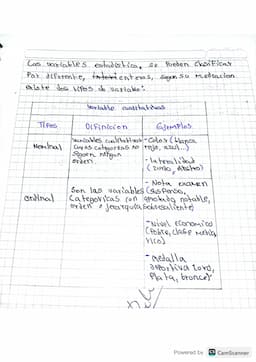 Las variables estadistica, se pueden clasificar
Por diferente, enteras, segun su medicion
existe dos tipos de variable:
Variable cualitativas
Tipos Difinicion Ejemplos
Nominal
variables cualitativas
cuyas categorias no
siguen ningun
orden.
- Color (blanco
rojo, azul...)
- lateralidad
(zurdo, diestro)
ordinal
Son las variables
categoricas con
orden o jerarquia
- Nota examen
(suspenso,
aprobado, notable,
sobresaliente)
- Nivel economico
(pobre, clase media,
rico)
- medalla
deportiva (oro,
plata, bronce)
Powered by CS CamScanner